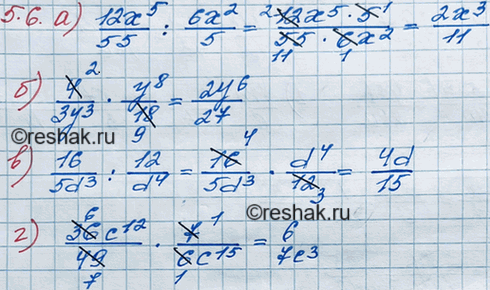 5.6. а) 12x⁵/55 : 6x²/5 = ²12x⁵ · 5¹ / 11 55 · 6x² 1 = 2x³/11
б) 4²/3y³ · y⁸/18 9 = 2y⁶/27
©reshak.ru ©reshak.ru
в) 16/5d³ : 12/d⁴ = 16⁴/5d³ · d⁴/12 3 = 4d/15
©reshak.ru
г) 36⁶c¹²/49 7 · 7¹/6c¹⁵ 1 = 6/7c³